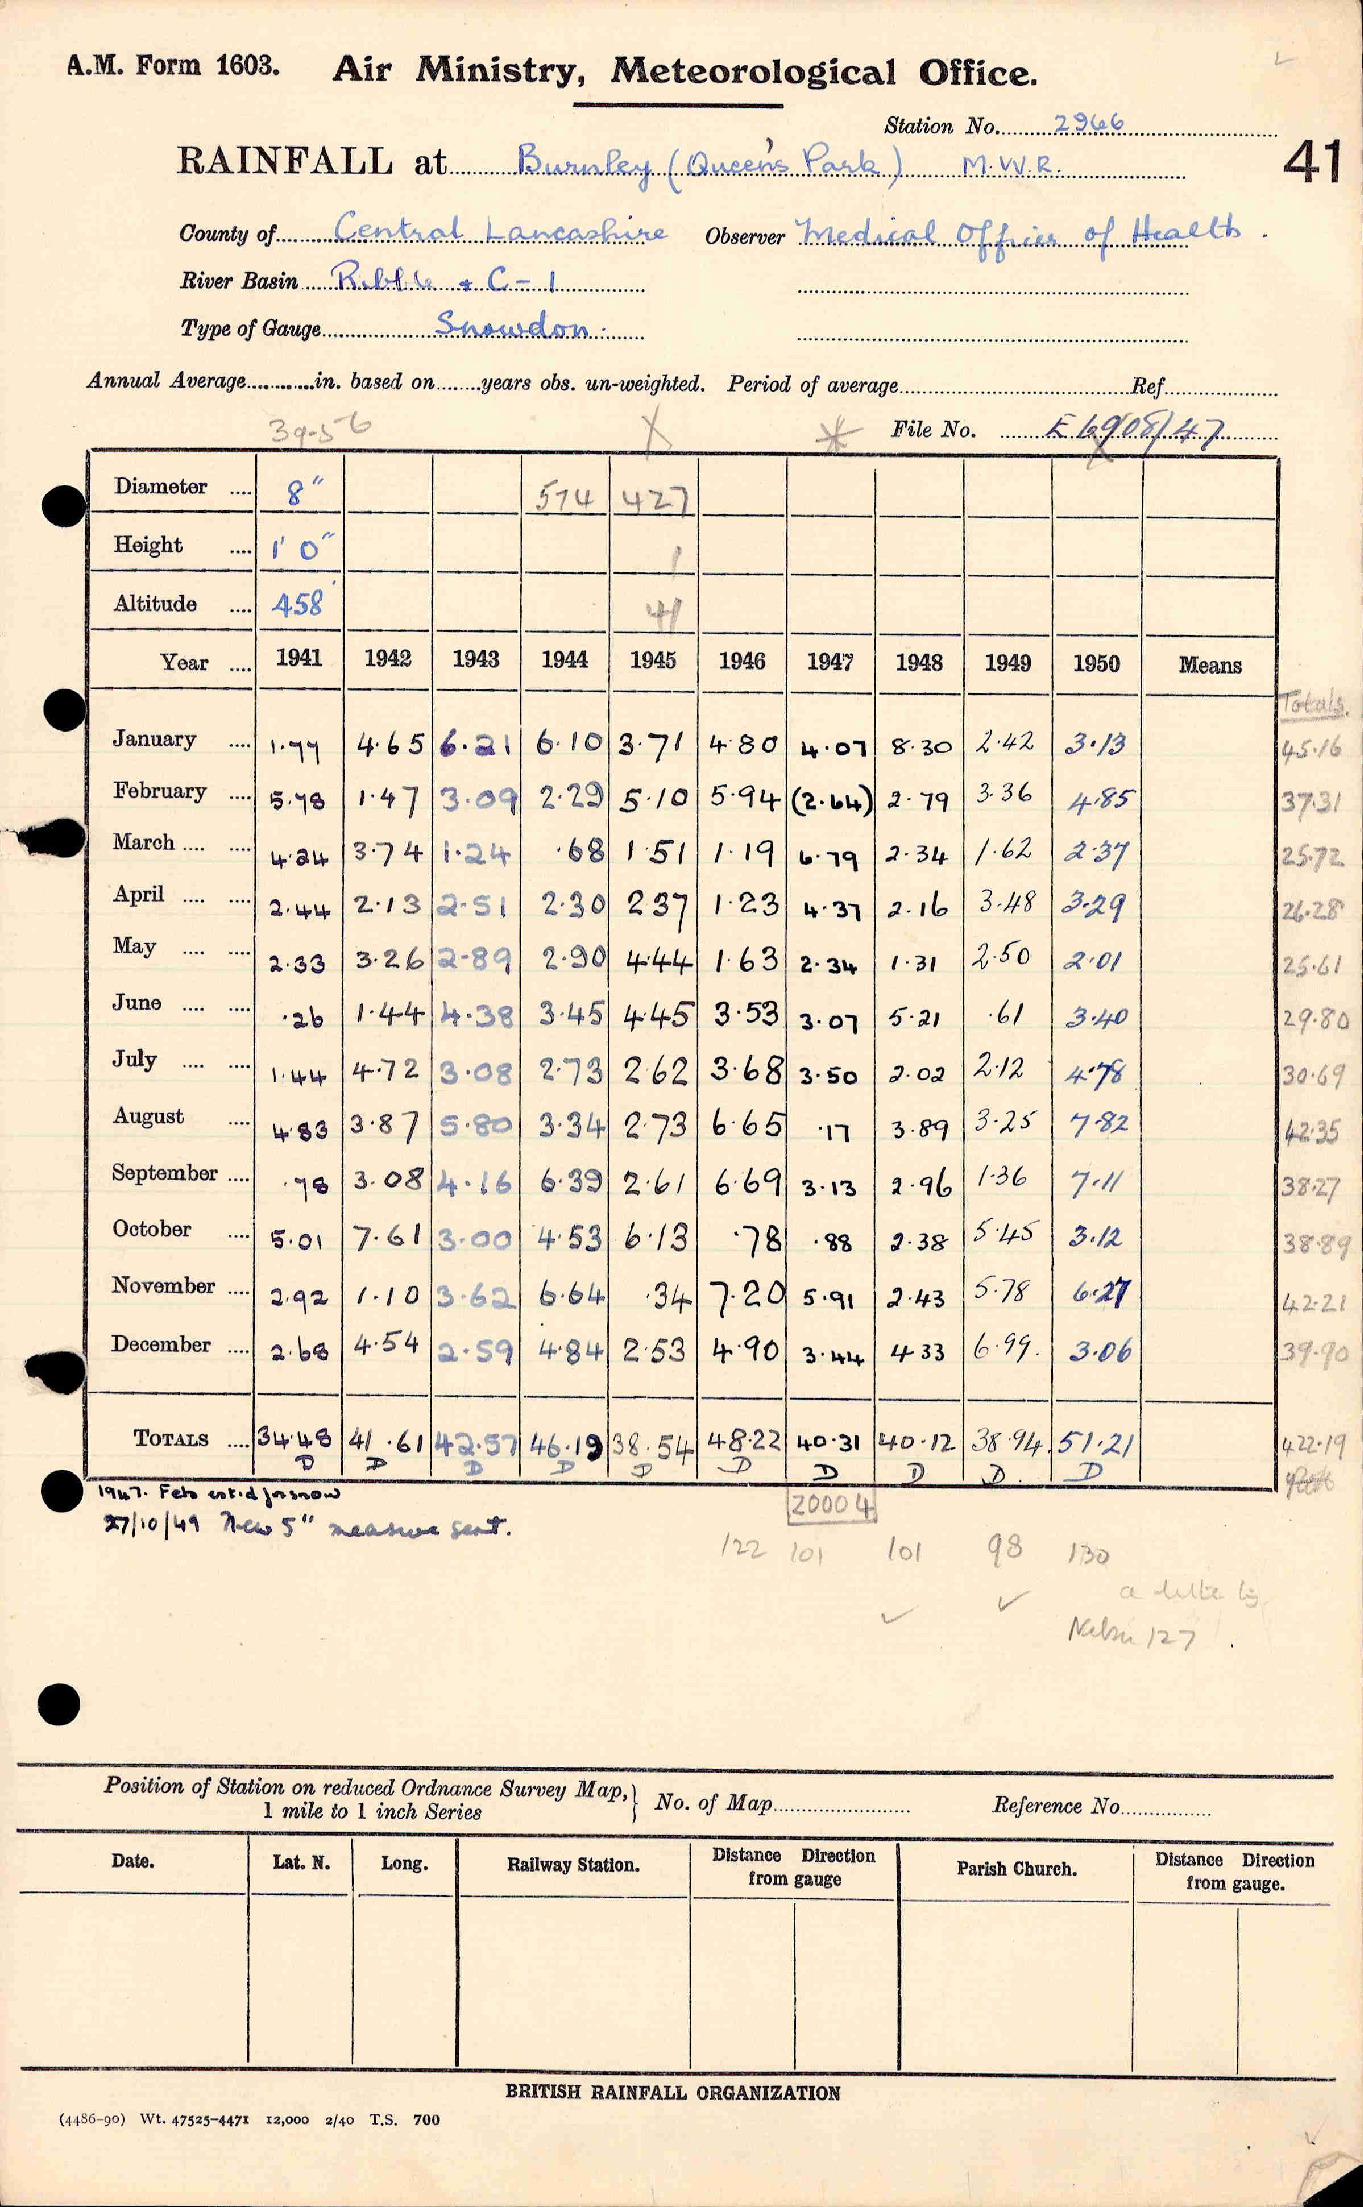 A.M. Form 1603. Air Ministry, Meteorological Office.
Station No. 2966
RAINFALL at Burnley (Queen's Park) M.W.R. 41
County of Central Lancashire Observer Medical Officer of Health.
River Basin Ribble + C-1
Type of Gauge Snowdon.
Annual Average in. based on years obs. un-weighted. Period of average Ref
39-56 File No. E 6908/47
Diameter .... 8" 574 427
Height .... 1' 0" 1
Altitude .... 458' 41
Year .... 1941 1942 1943 1944 1945 1946 1947 1948 1949 1950 Means
Totals.
January .... 1.77 4.65 6.21 6.10 3.71 4.80 4.07 8.30 2.42 3.13 45.16
February .... 5.78 1.47 3.09 2.29 5.10 5.94 (2.64) 2.79 3.36 4.85 37.31
March .... .... 4.24 3.74 1.24 .68 1.51 1.19 6.79 2.34 1.62 2.37 25.72
April .... .... 2.44 2.13 2.51 2.30 2.37 1.23 4.37 2.16 3.48 3.29 26.28
May .... .... 2.33 3.26 2.89 2.90 4.44 1.63 2.34 1.31 2.50 2.01 25.61
June .... .... .26 1.44 4.38 3.45 4.45 3.53 3.07 5.21 .61 3.40 29.80
July .... .... 1.44 4.72 3.08 2.73 2.62 3.68 3.50 2.02 2.12 4.78 30.69
August .... 4.83 3.87 5.80 3.34 2.73 6.65 .17 3.89 3.25 7.82 42.35
September .... .78 3.08 4.16 6.39 2.61 6.69 3.13 2.96 1.36 7.11 38.27
October .... 5.01 7.61 3.00 4.53 6.13 .78 .88 2.38 5.45 3.12 38.89
November .... 2.92 1.10 3.62 6.64 .34 7.20 5.91 2.43 5.78 6.27 42.21
December .... 2.68 4.54 2.59 4.84 2.53 4.90 3.44 4.33 6.99 3.06 39.90
TOTALS .... 34.48 41.61 42.57 46.19 38.54 48.22 40.31 40.12 38.94 51.21 422.19
D D D D D D D D D D
1947. Feb est.d for snow
20004
27/10/49 New 5" measure sent.
122 101 101 98 130
a little big
Nelson 127
Position of Station on reduced Ordnance Survey Map, 1 mile to 1 inch Series } No. of Map Reference No
Date. Lat. N. Long. Railway Station. Distance Direction from gauge Parish Church. Distance Direction from gauge.
BRITISH RAINFALL ORGANIZATION
(4486-90) Wt. 47525-4471 12,000 2/40 T.S. 700